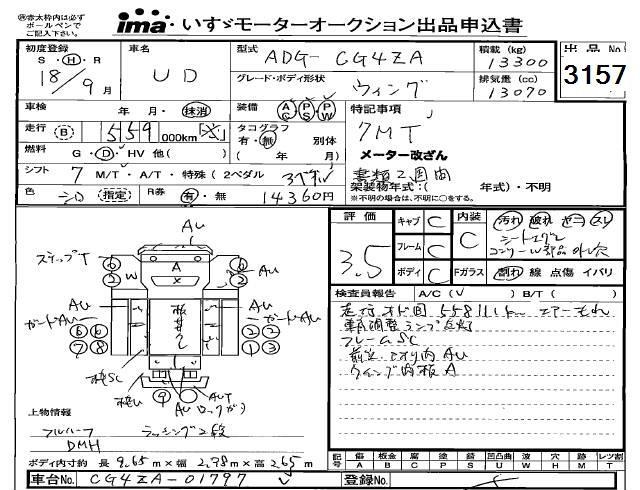 ㊟赤太枠内は必ず
ボールペンで
ご記入下さい。
ima いすゞモーターオークション出品申込書
初度登録 S・H・R 18/9月
車名 UD
型式 ADG-CG4ZA
積載 (kg) 13300
出品No 3157
グレード・ボディ形状 ウィング
排気量 (cc) 13070
車検 年 月・抹消
装備 AC PS PW
特記事項
走行 B 559,000km
タコグラフ 有・無 別体 ( 年 月)
7MT
メーター改ざん
燃料 G・D・HV 他( )
書類2週間
シフト 7 M/T・A/T・特殊(2ペダル 3ペダル)
架装物年式:( 年式)・不明
※不明の場合は、不明に○をする。
色 シロ 指定 R券 有・無 14360円
評価 3.5
キャブ C
フレーム C
ボディ C
内装 C
汚れ 破れ
Fガラス 割れ 線 点傷 イバリ
AU
ステップT
A
X
W
AU
AU
ガードAU
ガードAU
板サビ
検査員報告 A/C(V ) B/T( )
走行オド図 558111km エアーもれ
車高調整ランプ点灯
フレームSC
ウィング内板A
AU
上物情報
フルハーフ
DMH
ラッシング2段
ボディ内寸約 長 9.65m×幅 2.38m×高 2.65m
記号 傷A 板金B 腐C 塗P 錆S 凹凸曲U 波W 穴H 跡M レツ割T
車台No. CG4ZA-01797
登録No.